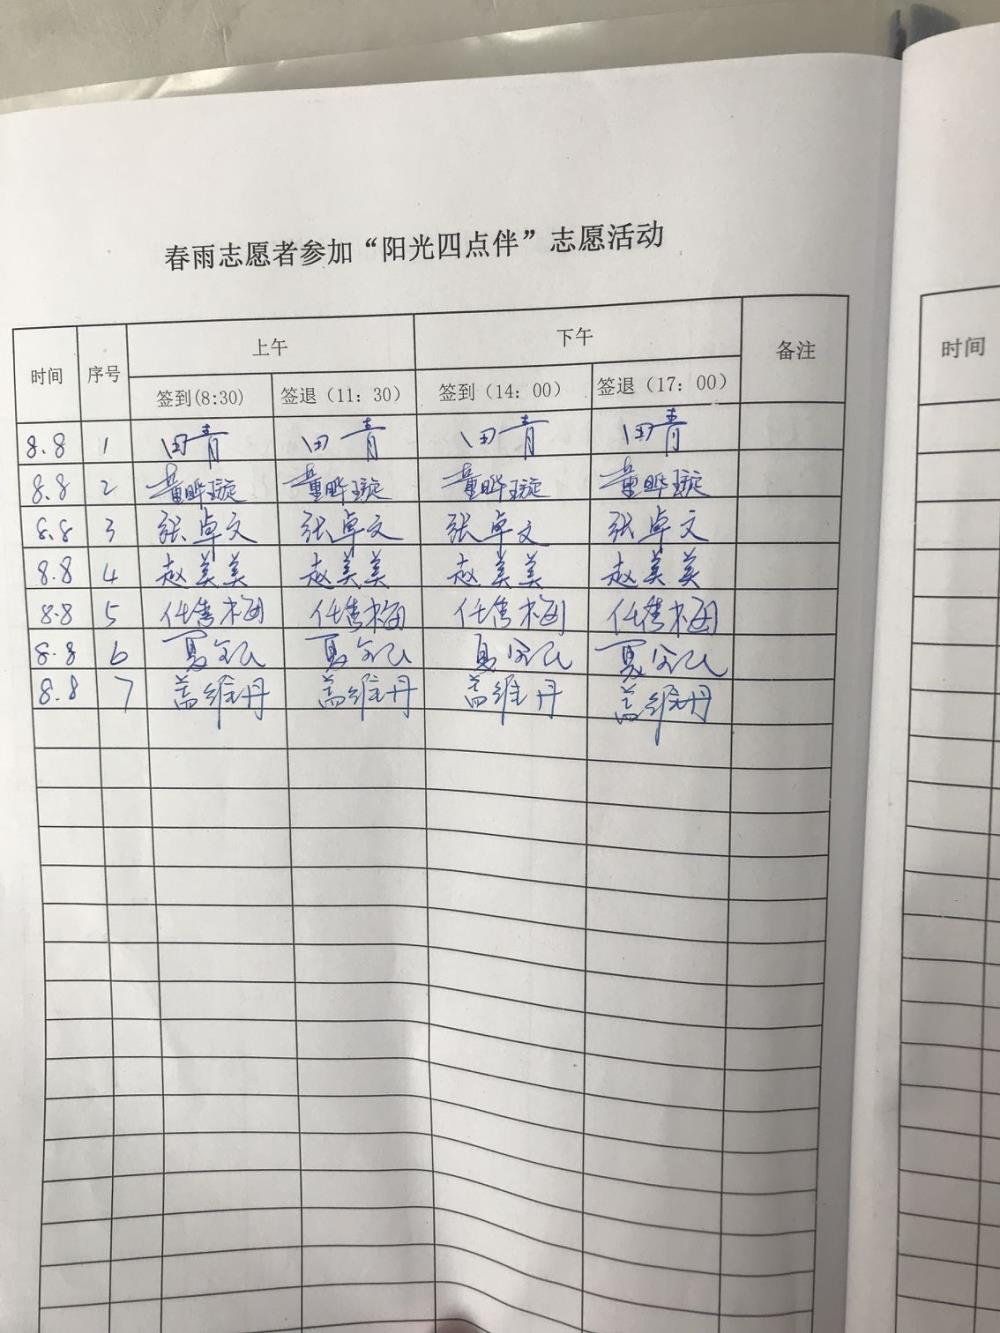 春雨志愿者参加“阳光四点伴”志愿活动
时间 序号 上午 下午 备注 时间
签到(8:30) 签退（11：30） 签到（14：00） 签退（17：00）
8.8 1 田青 田青 田青 田青
8.8 2 董晔璇 董晔璇 董晔璇 董晔璇
8.8 3 张卓文 张卓文 张卓文 张卓文
8.8 4 赵美美 赵美美 赵美美 赵美美
8.8 5 任隽梅 任隽梅 任隽梅 任隽梅
8.8 6 夏 夏 夏 夏
8.8 7 盖维丹 盖维丹 盖维丹 盖维丹